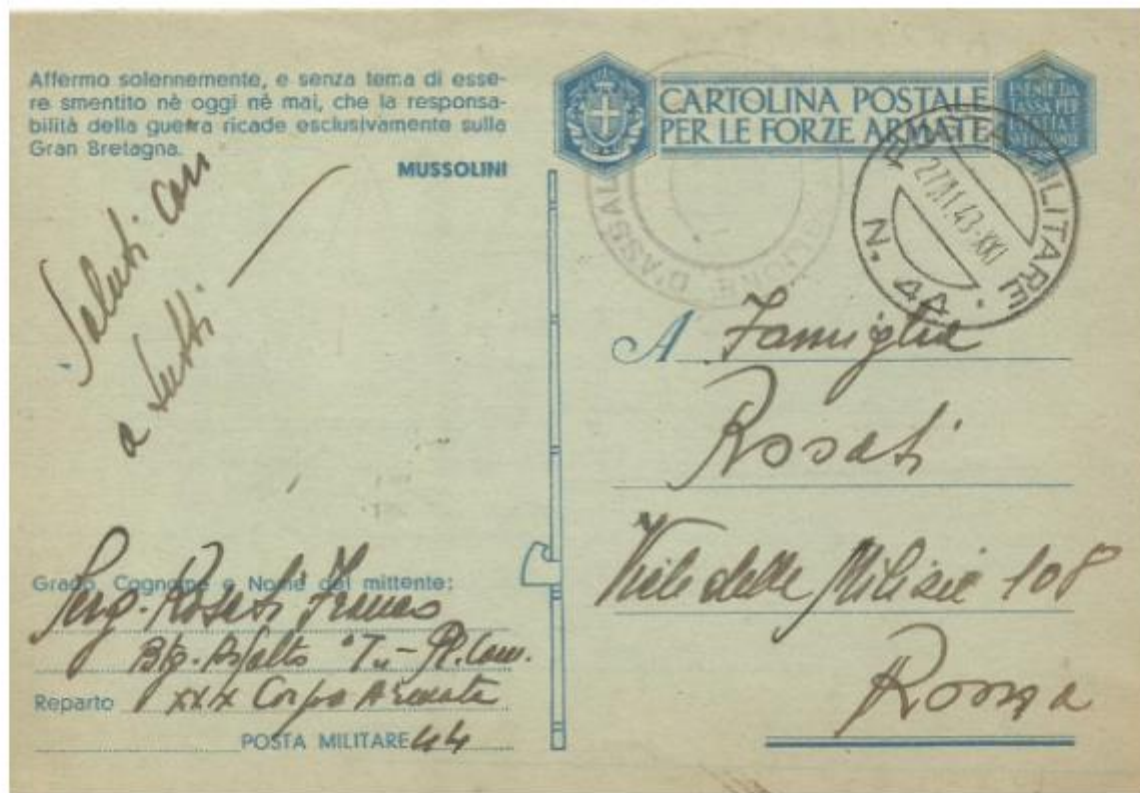 Affermo solennemente, e senza tema di esse-
re smentito nè oggi nè mai, che la responsa-
bilità della guerra ricade esclusivamente sulla
Gran Bretagna.
MUSSOLINI
Saluti cari
a tutti
Grado, Cognome e Nome del mittente:
Serg. Rosati Franco
Btg. Assalto "T" - Pl. Com.
Reparto XXX Corpo Armata
POSTA MILITARE 44
CARTOLINA POSTALE
PER LE FORZE ARMATE
POSTA MILITARE
N. 44
D'ASSAL
A Famiglia
Rosati
Viale delle Milizie 108
Roma